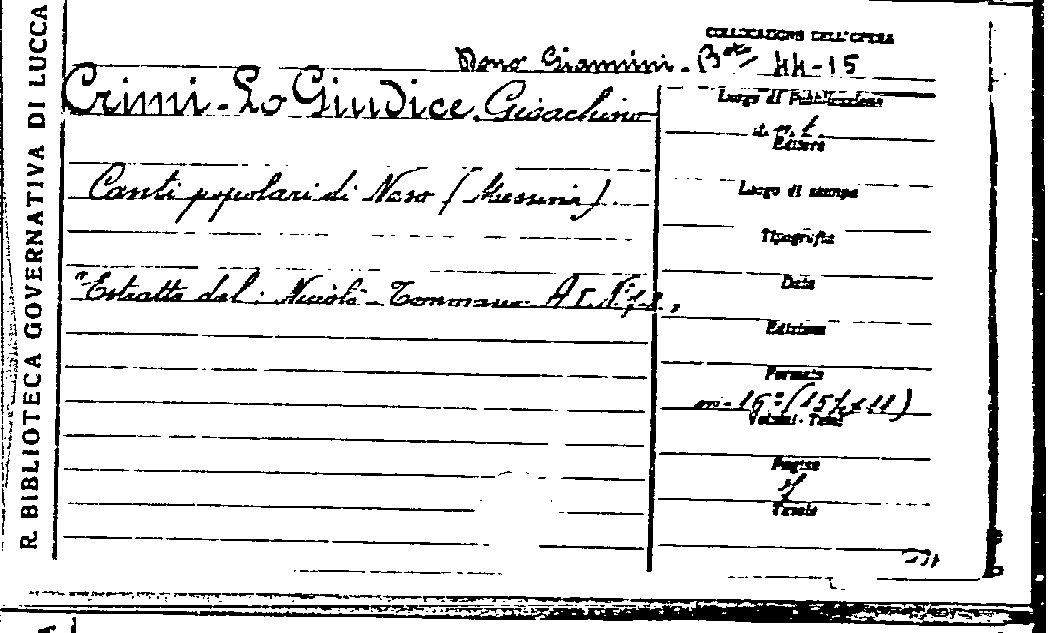 R. BIBLIOTECA GOVERNATIVA DI LUCCA
COLLOCAZIONE DELL'OPERA
Dono Giannini - Bta 44-15
Crimi-Lo Giudice Gioachino
Luogo di Pubblicazione
Editore
Canti popolari di Naso (Messina).
Luogo di stampa
Tipografia
"Estratto dal: Niccolò Tommaseo A I.
Data
Edizione
Formato
in-16°
Volumi - Tomi
Pagine
Tavole